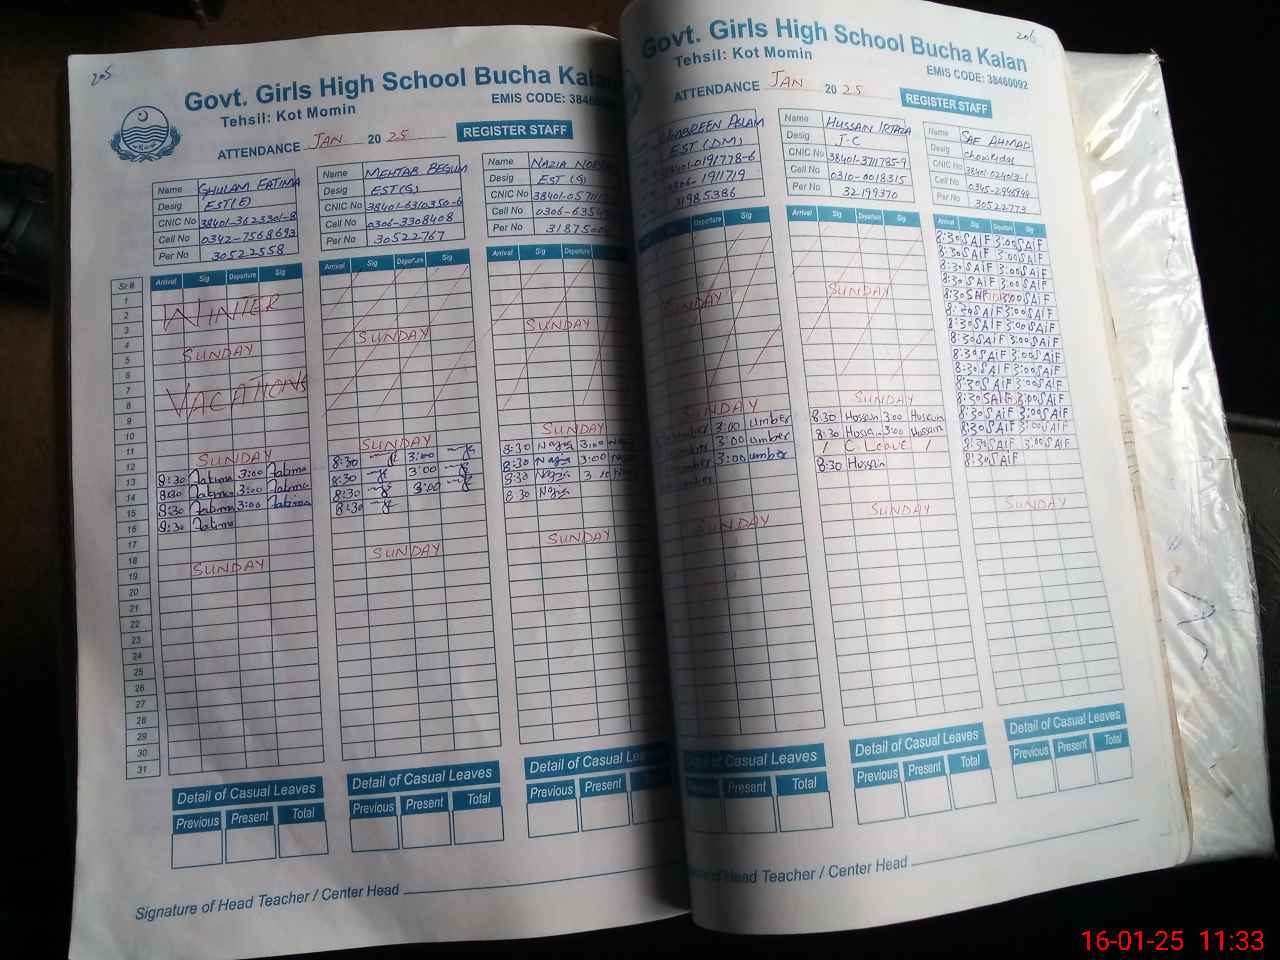 205
Govt. Girls High School Bucha Kalan
Tehsil: Kot Momin
EMIS CODE: 3846
ATTENDANCE JAN 20 25 REGISTER STAFF
Name GHULAM FATIMA
Desig EST(E)
CNIC No 38401-3623301-8
Cell No 0342-7568693
Per No 30522558
Name MEHTAB BEGUM
Desig EST(G)
CNIC No 38401-6310350-6
Cell No 0306-3308408
Per No 30522767
Name NAZIA
Desig EST (G)
CNIC No 38401-05
Cell No 0306-635
Per No 31875
Sr # Arrival Sig Departure Sig
Arrival Sig Departure Sig
Arrival Sig Departure
1
2
3
4
5
6
7
8
9
10
11
12
13
14
15
16
17
18
19
20
21
22
23
24
25
26
27
28
29
30
31
WINTER
SUNDAY
VACATIONS
SUNDAY
8:30 Fatima 3:00 Fatima
8:30 Fatima 3:00 Fatima
8:30 Fatima 3:00 Fatima
8:30 Fatima
SUNDAY
SUNDAY
SUNDAY
8:30 3:00
8:30 3:00
8:30 3:00
8:30
SUNDAY
SUNDAY
SUNDAY
8:30 Nazia 3:00
8:30 Nazia 3:00
8:30 Nazia 3
8:30 Nazia
SUNDAY
Detail of Casual Leaves
Previous Present Total
Detail of Casual Leaves
Previous Present Total
Detail of Casual
Previous Present
Signature of Head Teacher / Center Head
206
Govt. Girls High School Bucha Kalan
Tehsil: Kot Momin
EMIS CODE: 38460092
ATTENDANCE JAN 20 25 REGISTER STAFF
AMBREEN ASLAM
EST(DM)
38401-0191778-6
0306-1911719
31985386
Name HUSSAIN IRTAZA
Desig J-C
CNIC No 38401-3711785-9
Cell No 0310-0018315
Per No 32199370
Name SAF AHMAD
Desig chowkidar
CNIC No
Cell No
Per No 30522773
Departure Sig
Arrival Sig Departure Sig
Arrival Sig Departure Sig
SUNDAY
SUNDAY
3:00 umber
3:00 umber
3:00 umber
SUNDAY
SUNDAY
SUNDAY
8:30 Hussain 3:00 Hussain
8:30 3:00 Hussain
C Leave
8:30 Hussain
SUNDAY
8:30 SAIF 3:00 SAIF
8:30 SAIF 3:00 SAIF
8:30 SAIF 3:00 SAIF
8:30 SAIF 3:00 SAIF
8:30 3:00 SAIF
8:30 SAIF 3:00 SAIF
8:30 SAIF 3:00 SAIF
8:30 SAIF 3:00 SAIF
8:30 SAIF 3:00 SAIF
8:30 SAIF 3:00 SAIF
8:30 SAIF 3:00 SAIF
8:30 3:00 SAIF
8:30 SAIF 3:00 SAIF
8:30 SAIF 3:00 SAIF
8:30 SAIF 3:00 SAIF
8:30 SAIF
SUNDAY
Detail of Casual Leaves
Present Total
Detail of Casual Leaves
Previous Present Total
Detail of Casual Leaves
Previous Present Total
Head Teacher / Center Head
16-01-25 11:33